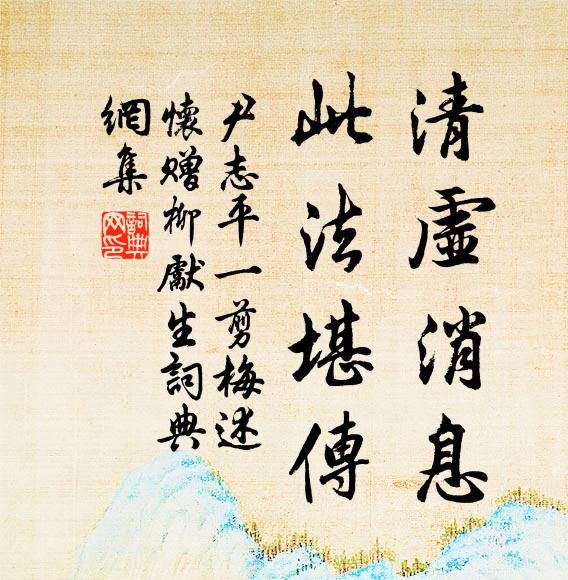 清虛消息
此法堪傳
尹志平一剪梅述
懷贈柳獻生詞典
網集
詞典
网印